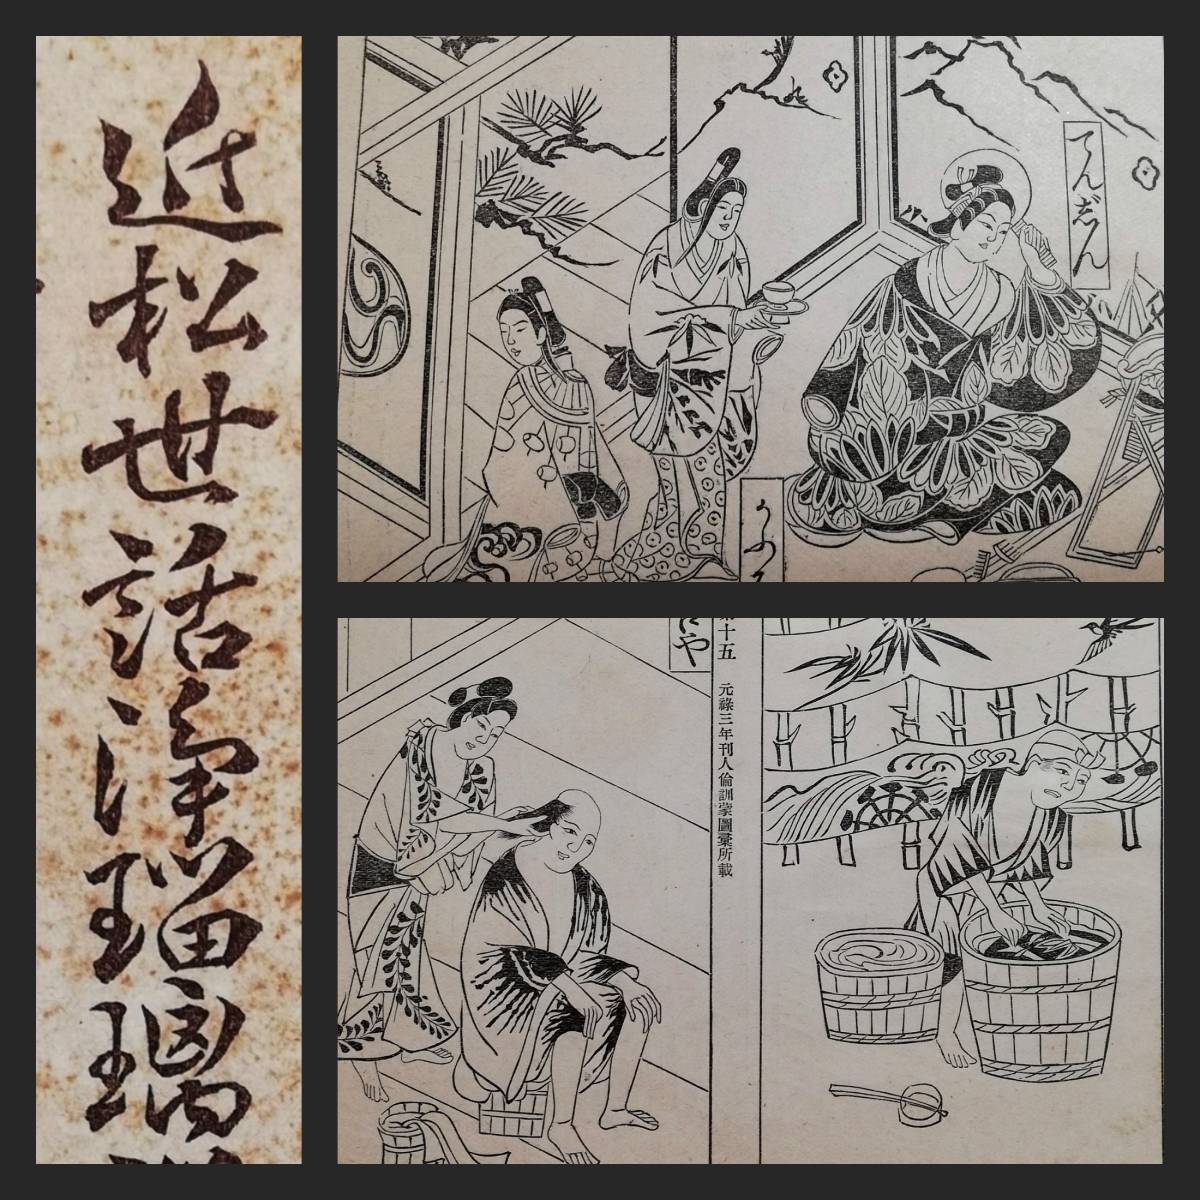 近松世話浄瑠璃
てんじん
かふろ
や
十五
元祿三年刊人倫訓蒙圖彙所載